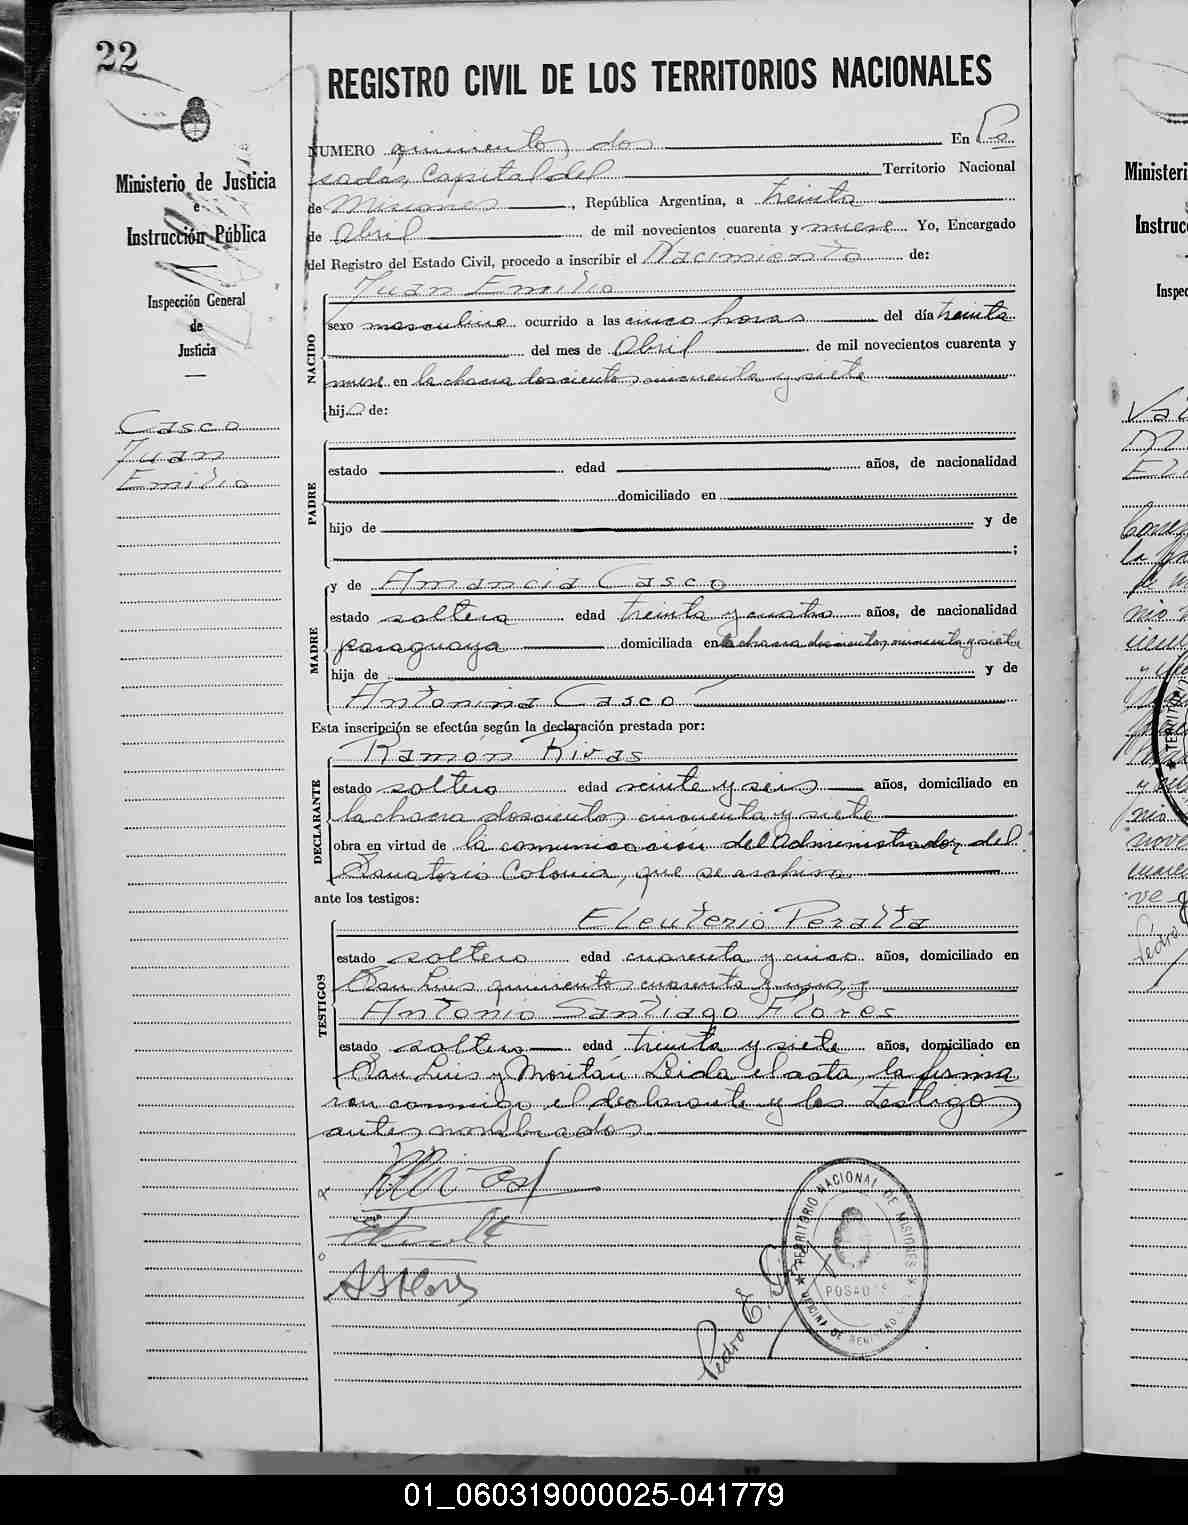 22
REGISTRO CIVIL DE LOS TERRITORIOS NACIONALES
Ministerio de Justicia
e
Instrucción Pública
Inspección General
de
Justicia
Casco
Juan
Emilio
NUMERO quinientos dos En Po
sadas, Capital del Territorio Nacional
de Misiones, República Argentina, a treinta
de Abril de mil novecientos cuarenta y nueve Yo, Encargado
del Registro del Estado Civil, procedo a inscribir el Nacimiento de:
Juan Emilio
NACIDO
sexo masculino ocurrido a las cinco horas del día treinta
del mes de Abril de mil novecientos cuarenta y
nueve en la chacra doscientos cincuenta y siete
hijo de:
PADRE
estado edad años, de nacionalidad
domiciliado en
hijo de y de
;
MADRE
y de Amancia Casco
estado soltera edad treinta y cuatro años, de nacionalidad
paraguaya domiciliada en la chacra doscientos cincuenta y siete
hija de y de
Antonina Casco
Esta inscripción se efectúa según la declaración prestada por:
DECLARANTE
Ramón Rivas
estado soltero edad veinte y seis años, domiciliado en
la chacra doscientos cincuenta y siete
obra en virtud de la comunicación del Administrador del
Sanatorio Colonia, que se archiva.
ante los testigos:
TESTIGOS
Eleuterio Peralta
estado soltero edad cuarenta y cinco años, domiciliado en
San Luis quinientos cuarenta y uno, y
Antonio Santiago Flores
estado soltero edad treinta y siete años, domiciliado en
San Luis y Moritán. Leida el acta, la firma
ron conmigo el declarante y los testigos
antes nombrados.
TERRITORIO NACIONAL DE MISIONES
POSADAS
OFICINA DE
Pedro E.
Ministeri
Instruc
Inspec
01_060319000025-041779